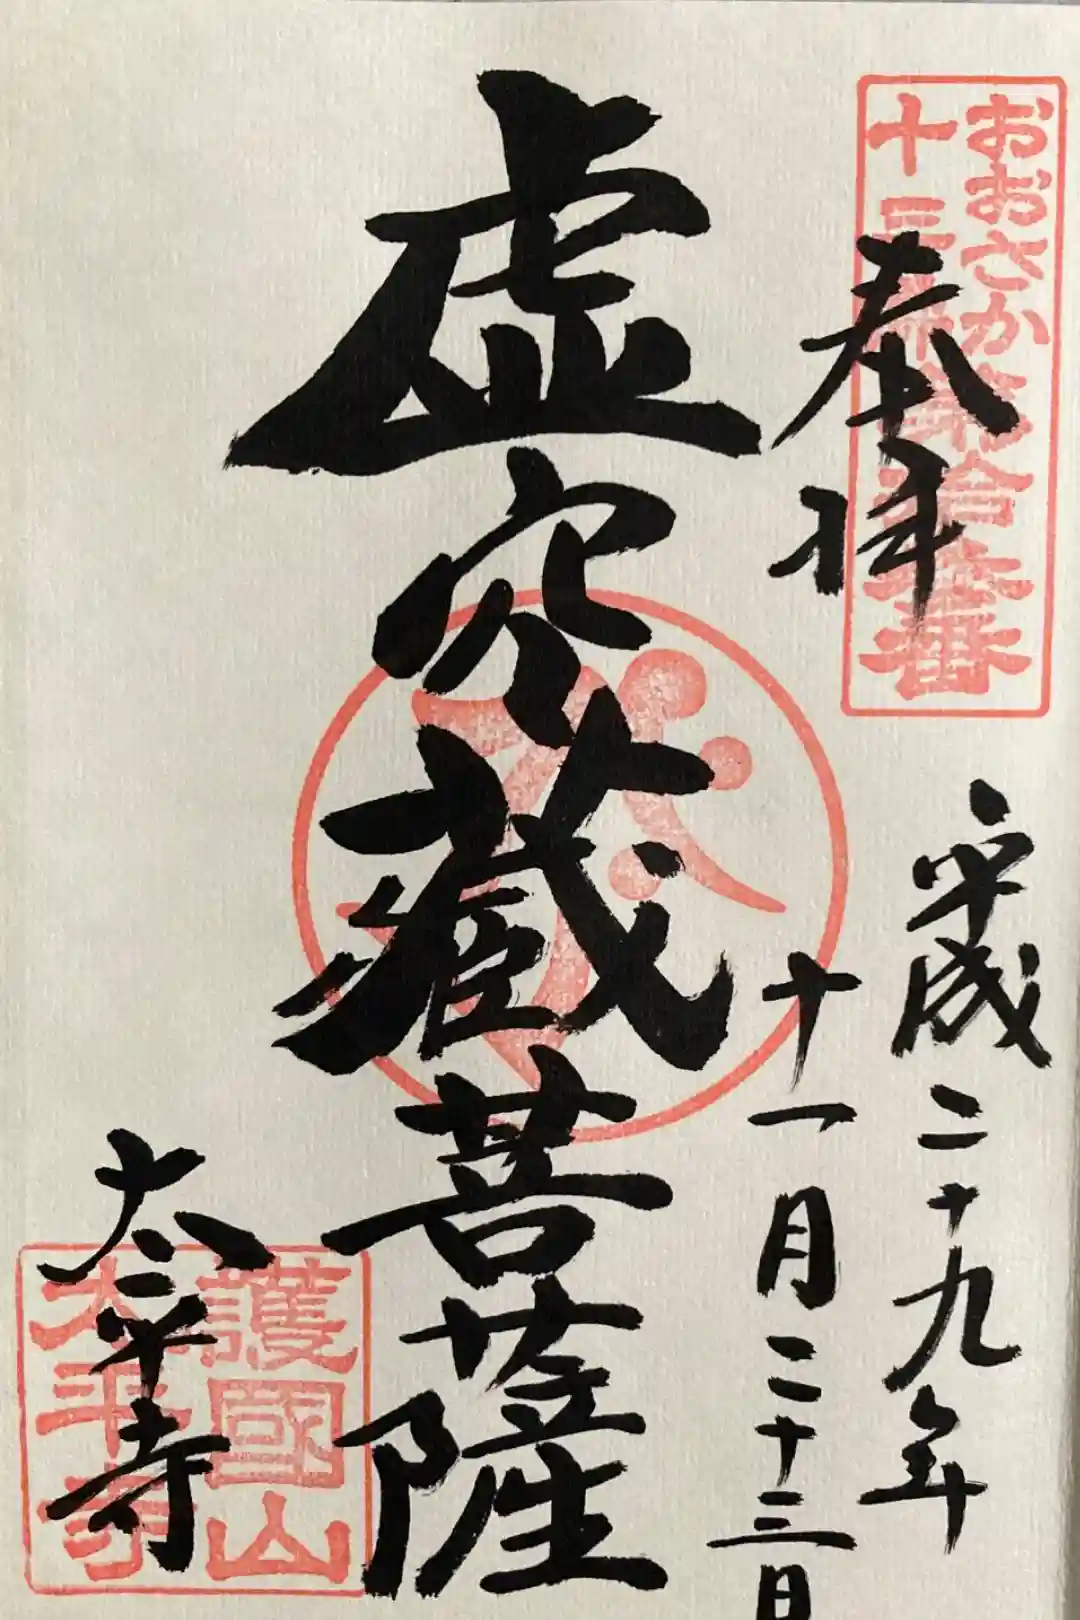 おおさか
十三佛第拾三番
奉拝
平成二十九年
十一月二十三日
虚空藏菩薩
護國山
太平寺
太平寺